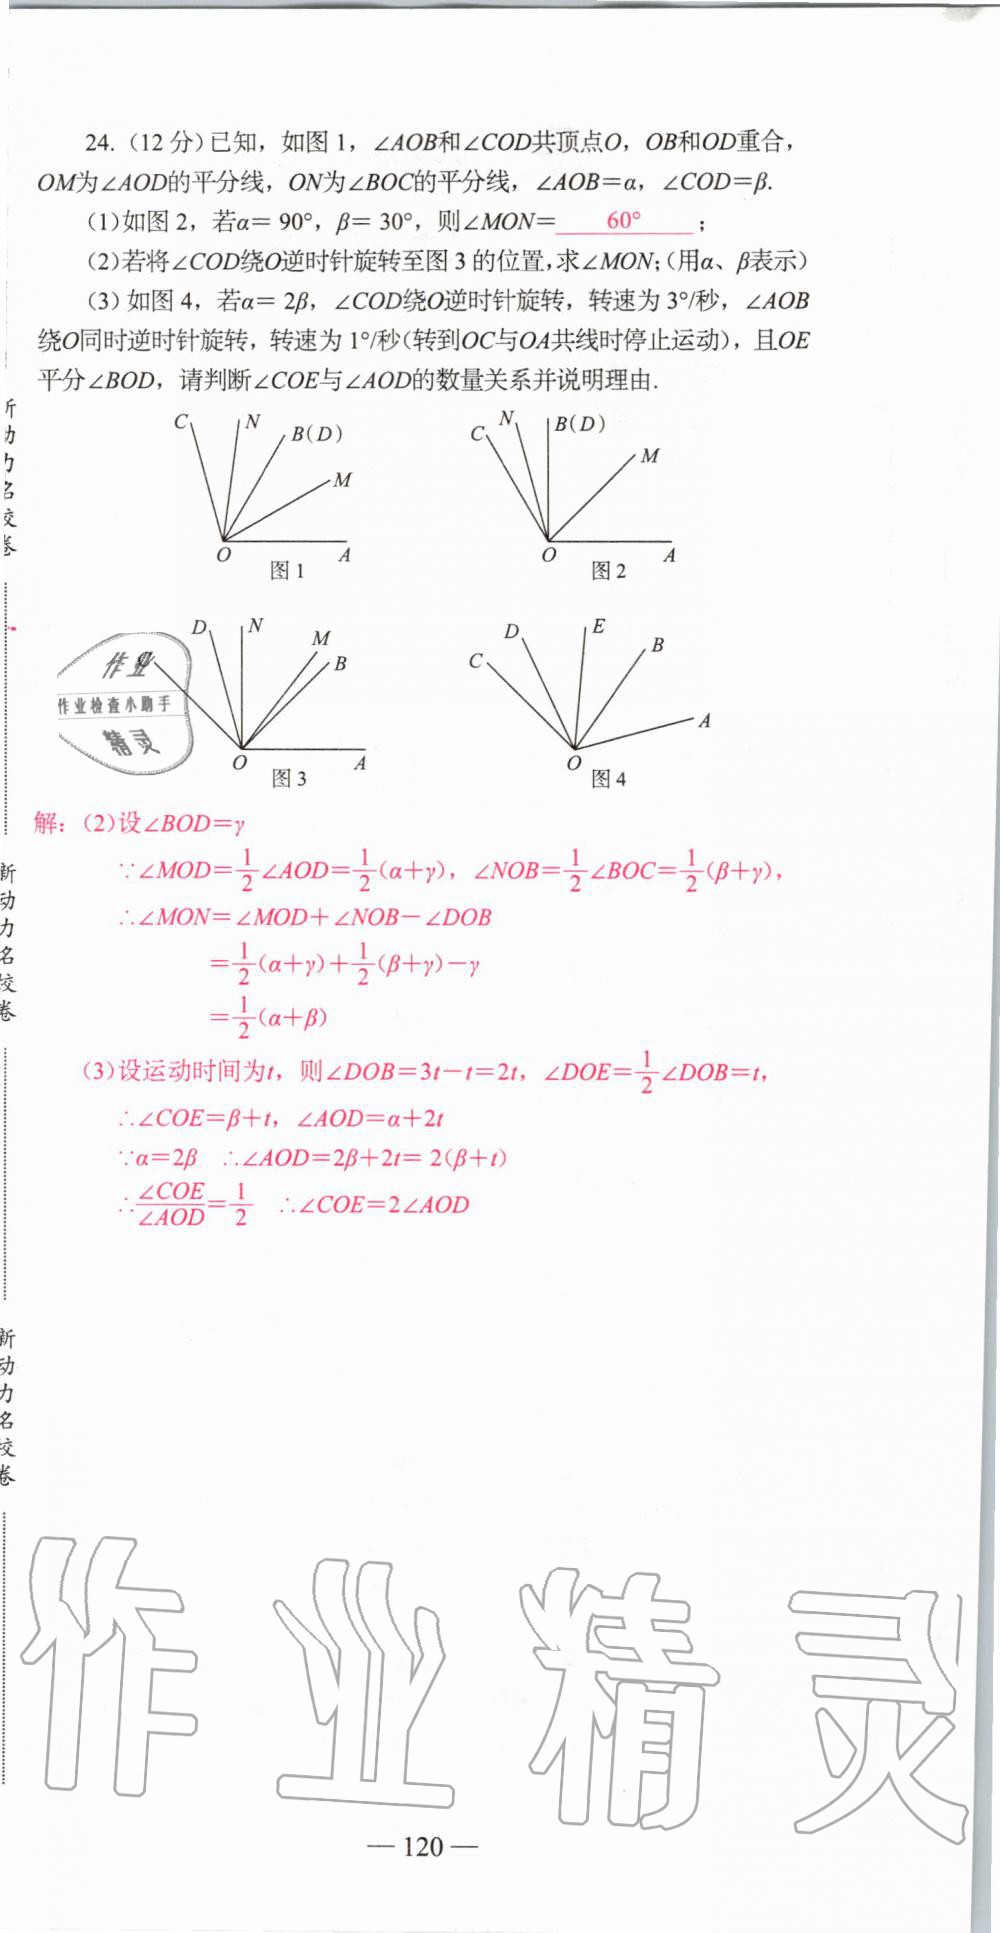 24.(12分)已知，如图1，∠AOB和∠COD共顶点O，OB和OD重合，
OM为∠AOD的平分线，ON为∠BOC的平分线，∠AOB=α，∠COD=β.
(1)如图2，若α= 90°，β= 30°，则∠MON= 60° ；
(2)若将∠COD绕O逆时针旋转至图3的位置,求∠MON;(用α、β表示)
(3)如图4，若α= 2β，∠COD绕O逆时针旋转，转速为3°/秒，∠AOB
绕O同时逆时针旋转，转速为1°/秒(转到OC与OA共线时停止运动)，且OE
平分∠BOD，请判断∠COE与∠AOD的数量关系并说明理由.
C N B(D) M O A
图1
C N B(D) M O A
图2
D N M B O A
图3
C D E B A O
图4
作业
作业检查小助手
精灵
解：(2)设∠BOD=γ
∵∠MOD=1/2∠AOD=1/2(α+γ)，∠NOB=1/2∠BOC=1/2(β+γ)，
∴∠MON=∠MOD+∠NOB-∠DOB
=1/2(α+γ)+1/2(β+γ)-γ
=1/2(α+β)
(3)设运动时间为t，则∠DOB=3t-t=2t，∠DOE=1/2∠DOB=t，
∴∠COE=β+t，∠AOD=α+2t
∵α=2β ∴∠AOD=2β+2t= 2(β+t)
∴∠COE/∠AOD=1/2 ∴∠COE=2∠AOD
新动力名校卷
新动力名校卷
新动力名校卷
作业精灵
— 120 —